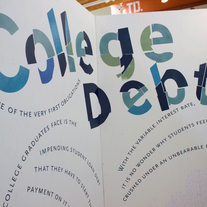 TD.
College
Debt
E OF THE VERY FIRST OBLIGATIONS
COLLEGE GRADUATES FACE IS THE
IMPENDING STUDENT LOAN
THAT THEY HAVE TO START
PAYMENT ON IT
WITH THE VARIABLE INTEREST RATE,
IT IS NO WONDER WHY STUDENTS FEEL
CRUSHED UNDER AN UNBEARABLE